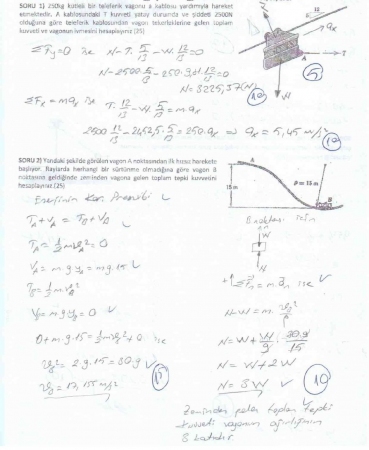 SORU 1) 250kg kütleli bir teleferik vagonu A kablosu yardımıyla hareket
etmektedir. A kablosundaki T kuvveti yatay durumda ve şiddeti 2500N
olduğuna göre teleferik kablosundan vagon tekerleklerine gelen toplam
kuvveti ve vagonun ivmesini hesaplayınız (25)
ΣFy=0 ise N-T.5/13-W.12/13=0
N-2500.5/13-250.9,81.12/13=0
N=3225,37(N)
10
ΣFx=max ise T.12/13-W.5/13=m.ax
2500.12/13-2452,5.5/13=250.ax ⇒ ax=5,45 m/s²
10
ax
A
T
W
5
SORU 2) Yandaki şekilde görülen vagon A noktasından ilk hızsız harekete
başlıyor. Raylarda herhangi bir sürtünme olmadığına göre vagon B
noktasına geldiğinde zeminden vagona gelen toplam tepki kuvvetini
hesaplayınız (25)
A
15 m
ρ = 15 m
B
Enerjinin Kor. Prensibi
TA+VA=TB+VB
TA=1/2 mvA²=0
VA=m.g.yA=m.g.15
TB=1/2.m.vB²
VB=m.g.yB=0
0+m.g.15=1/2mvB²+0 ise
vB²=2.g.15=30g
vB=17,155 m/s
B noktası için
W
N
+↑ΣFn=m.an ise
N-W=m.vB²/ρ
N=W+W/g.30.g/15
N=W+2W
N=3W
10
Zeminden gelen toplam tepki
kuvveti vagonun ağırlığının
3 katıdır.